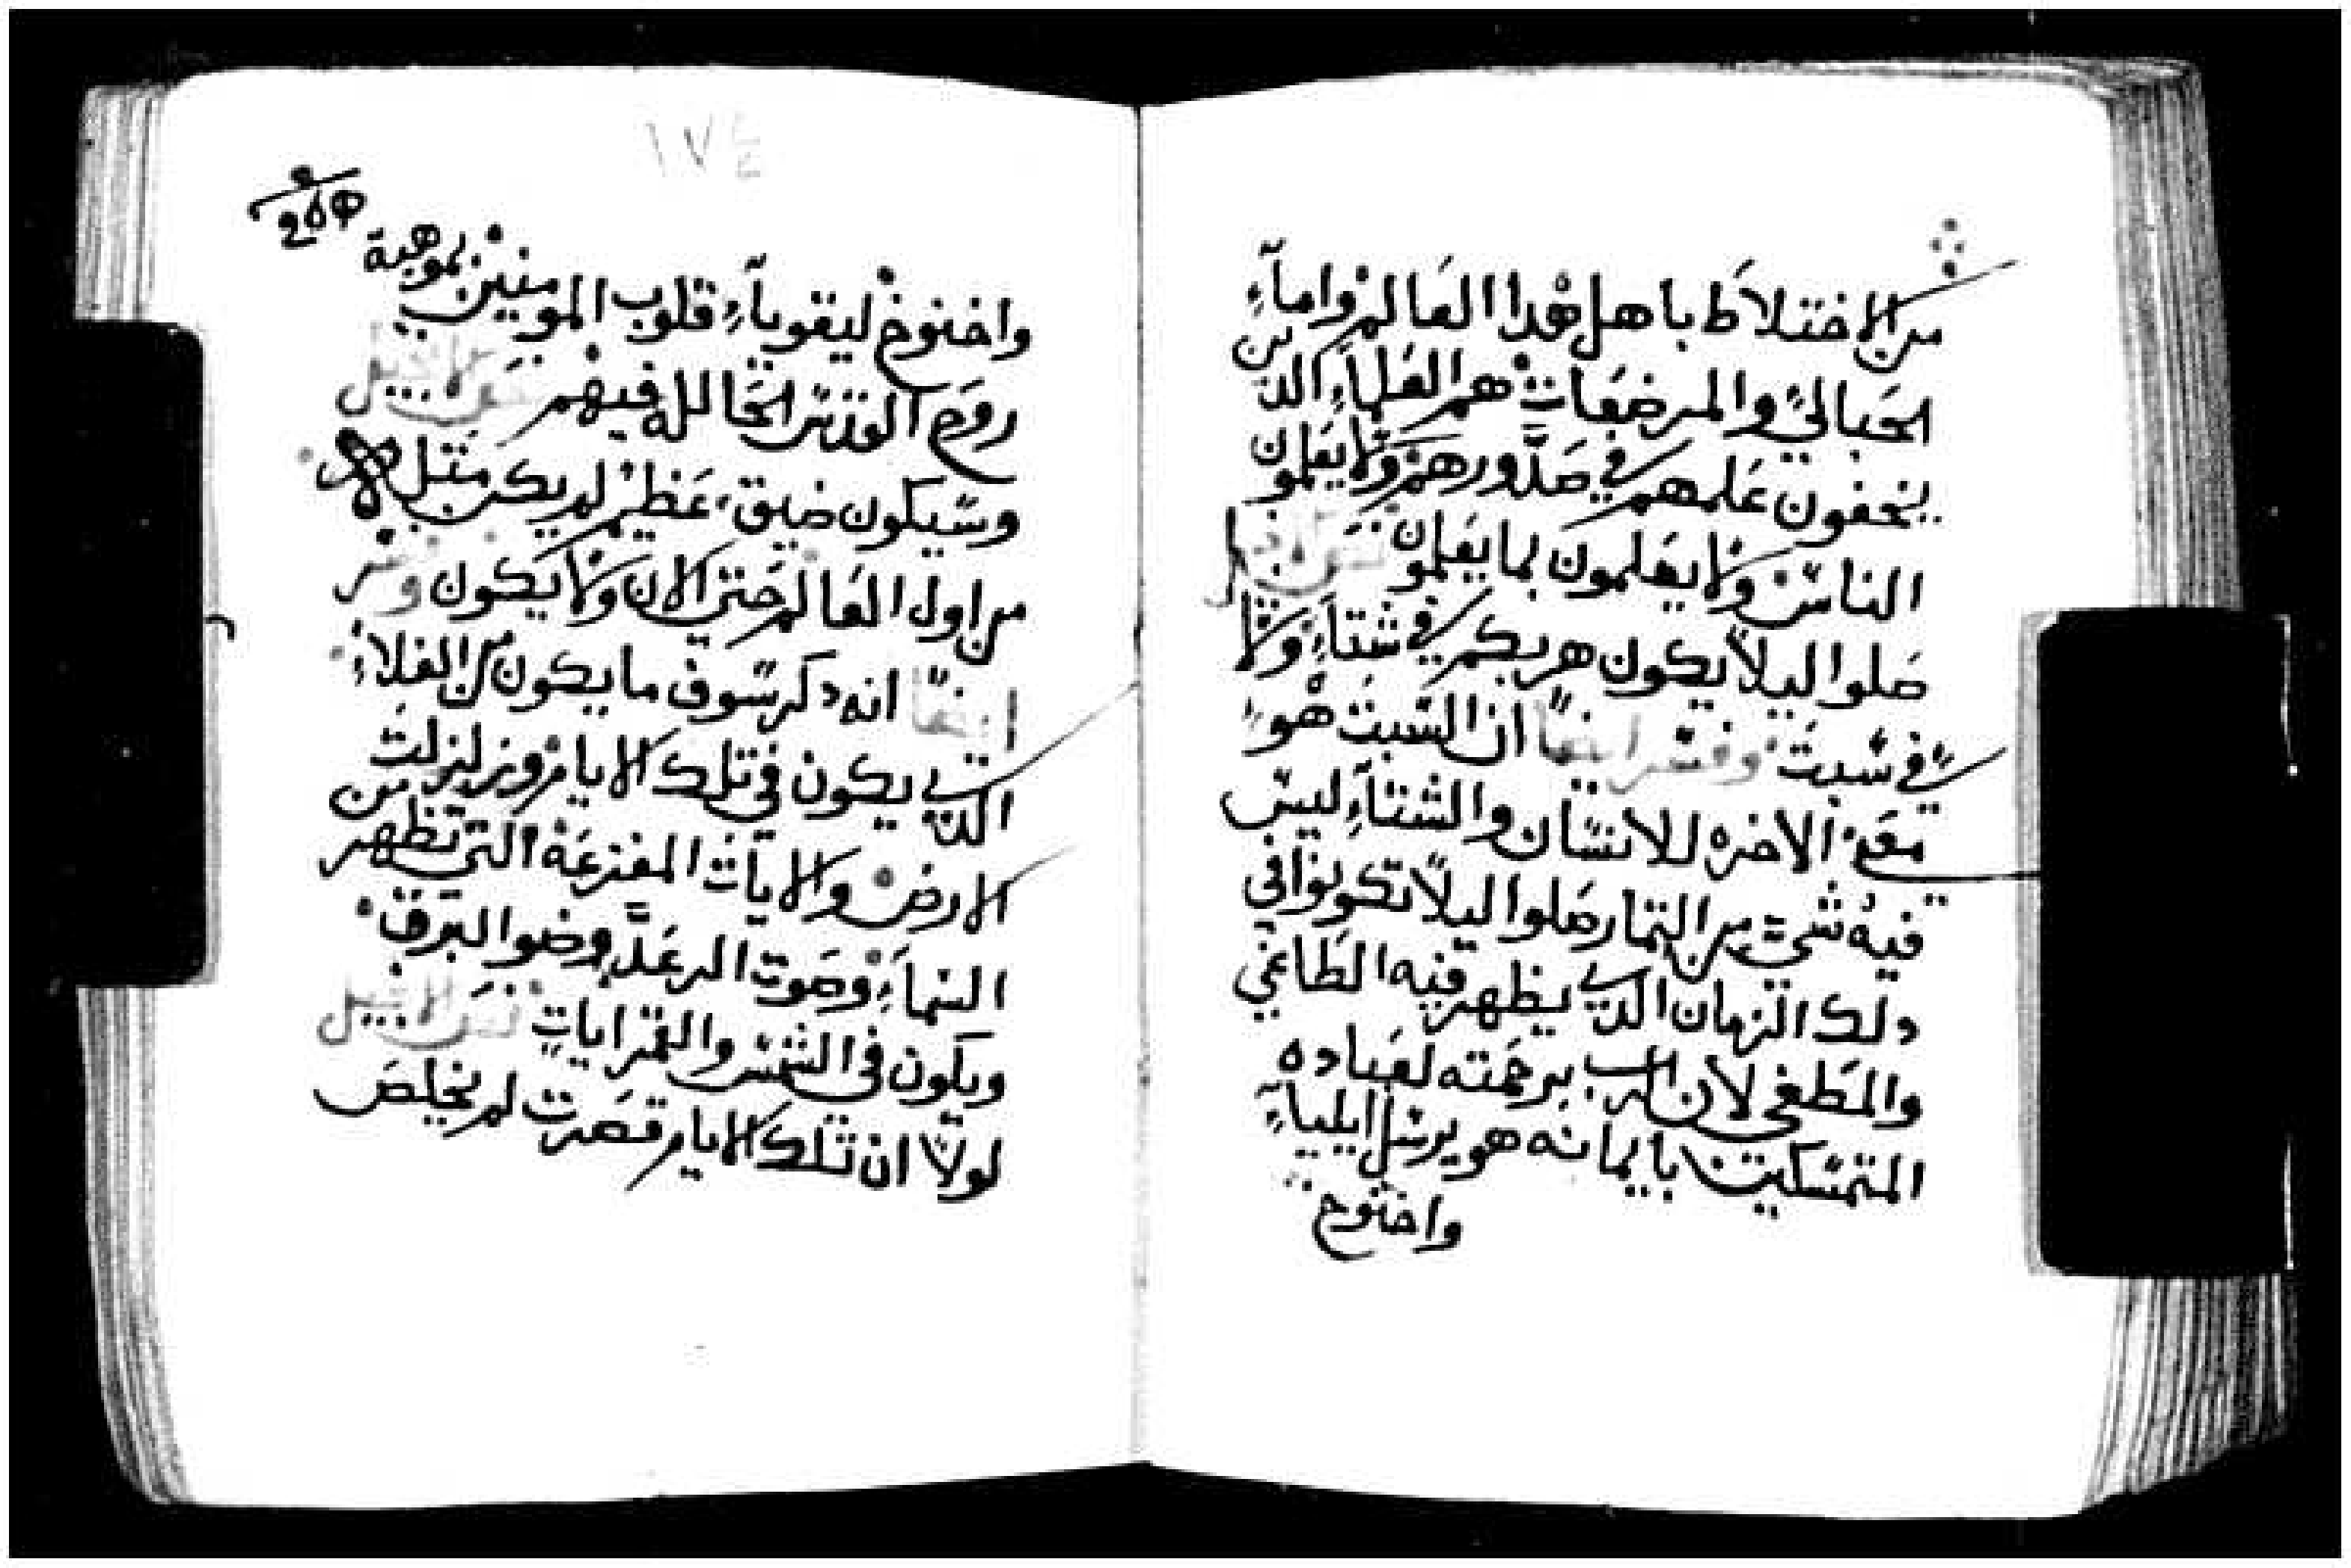 من الاختلاط باهل هدا العالم واماء
الحبالي والمرضعات هم العلماء الدين
يخفون علمهم في صدورهم ولا يعلمون
الناس ولا يعلمون بما يعلمون نص الانجيل
صلوا ليلا يكون هربكم في شتاء ولا
في سبت وفسر ايضا ان السبت هو
معني الاخره للانسان والشتاء ليس
فيه شي من الثمار صلوا ليلا تكونوا في
دلك الزمان الدي يظهر فيه الطاغي
والمطغي لان الرب برحمته لعباده
المتمسكين بايمانه هو يرسل ايلياء
واخنوخ
١٧٤
واخنوخ ليقوياء قلوب المومنين بموهبة
روح القدس الحاله فيهم نص الانجيل
وسيكون ضيق عظيم لم يكن مثله
من اول العالم حتي الان ولا يكون وفسر
ايضا انه دكر سوف ما يكون من الغلاء
الدي يكون في تلك الايام وزلزلت من
الارض والايات المفزعه التي تظهر
السماء وصوت الرعد وضوا البرق
ويكون في الشمس والقمر ايات نص الانجيل
لولا ان تلك الايام قصرت لم يخلص